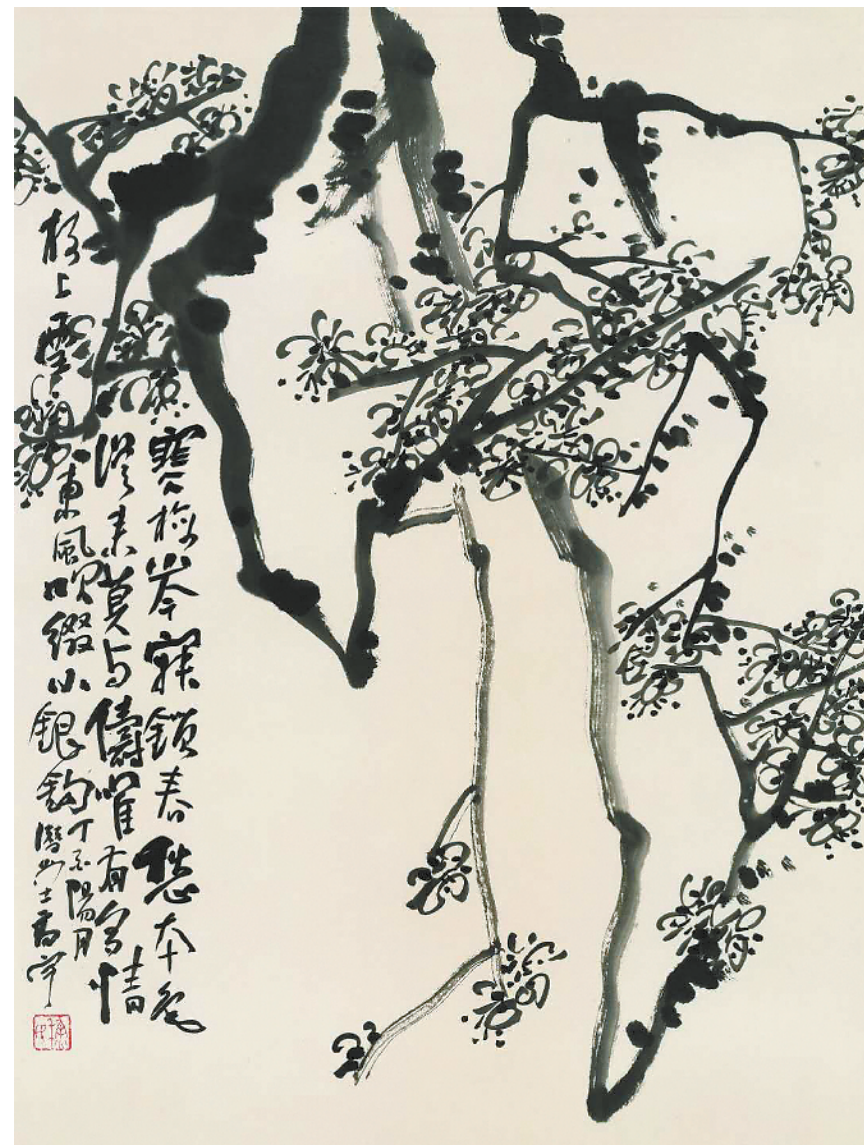 寒梅岑寂鎖春愁本色
從來莫与儔唯有多情
枝上雪
東風吹綴小銀鈎
丁亥陽月